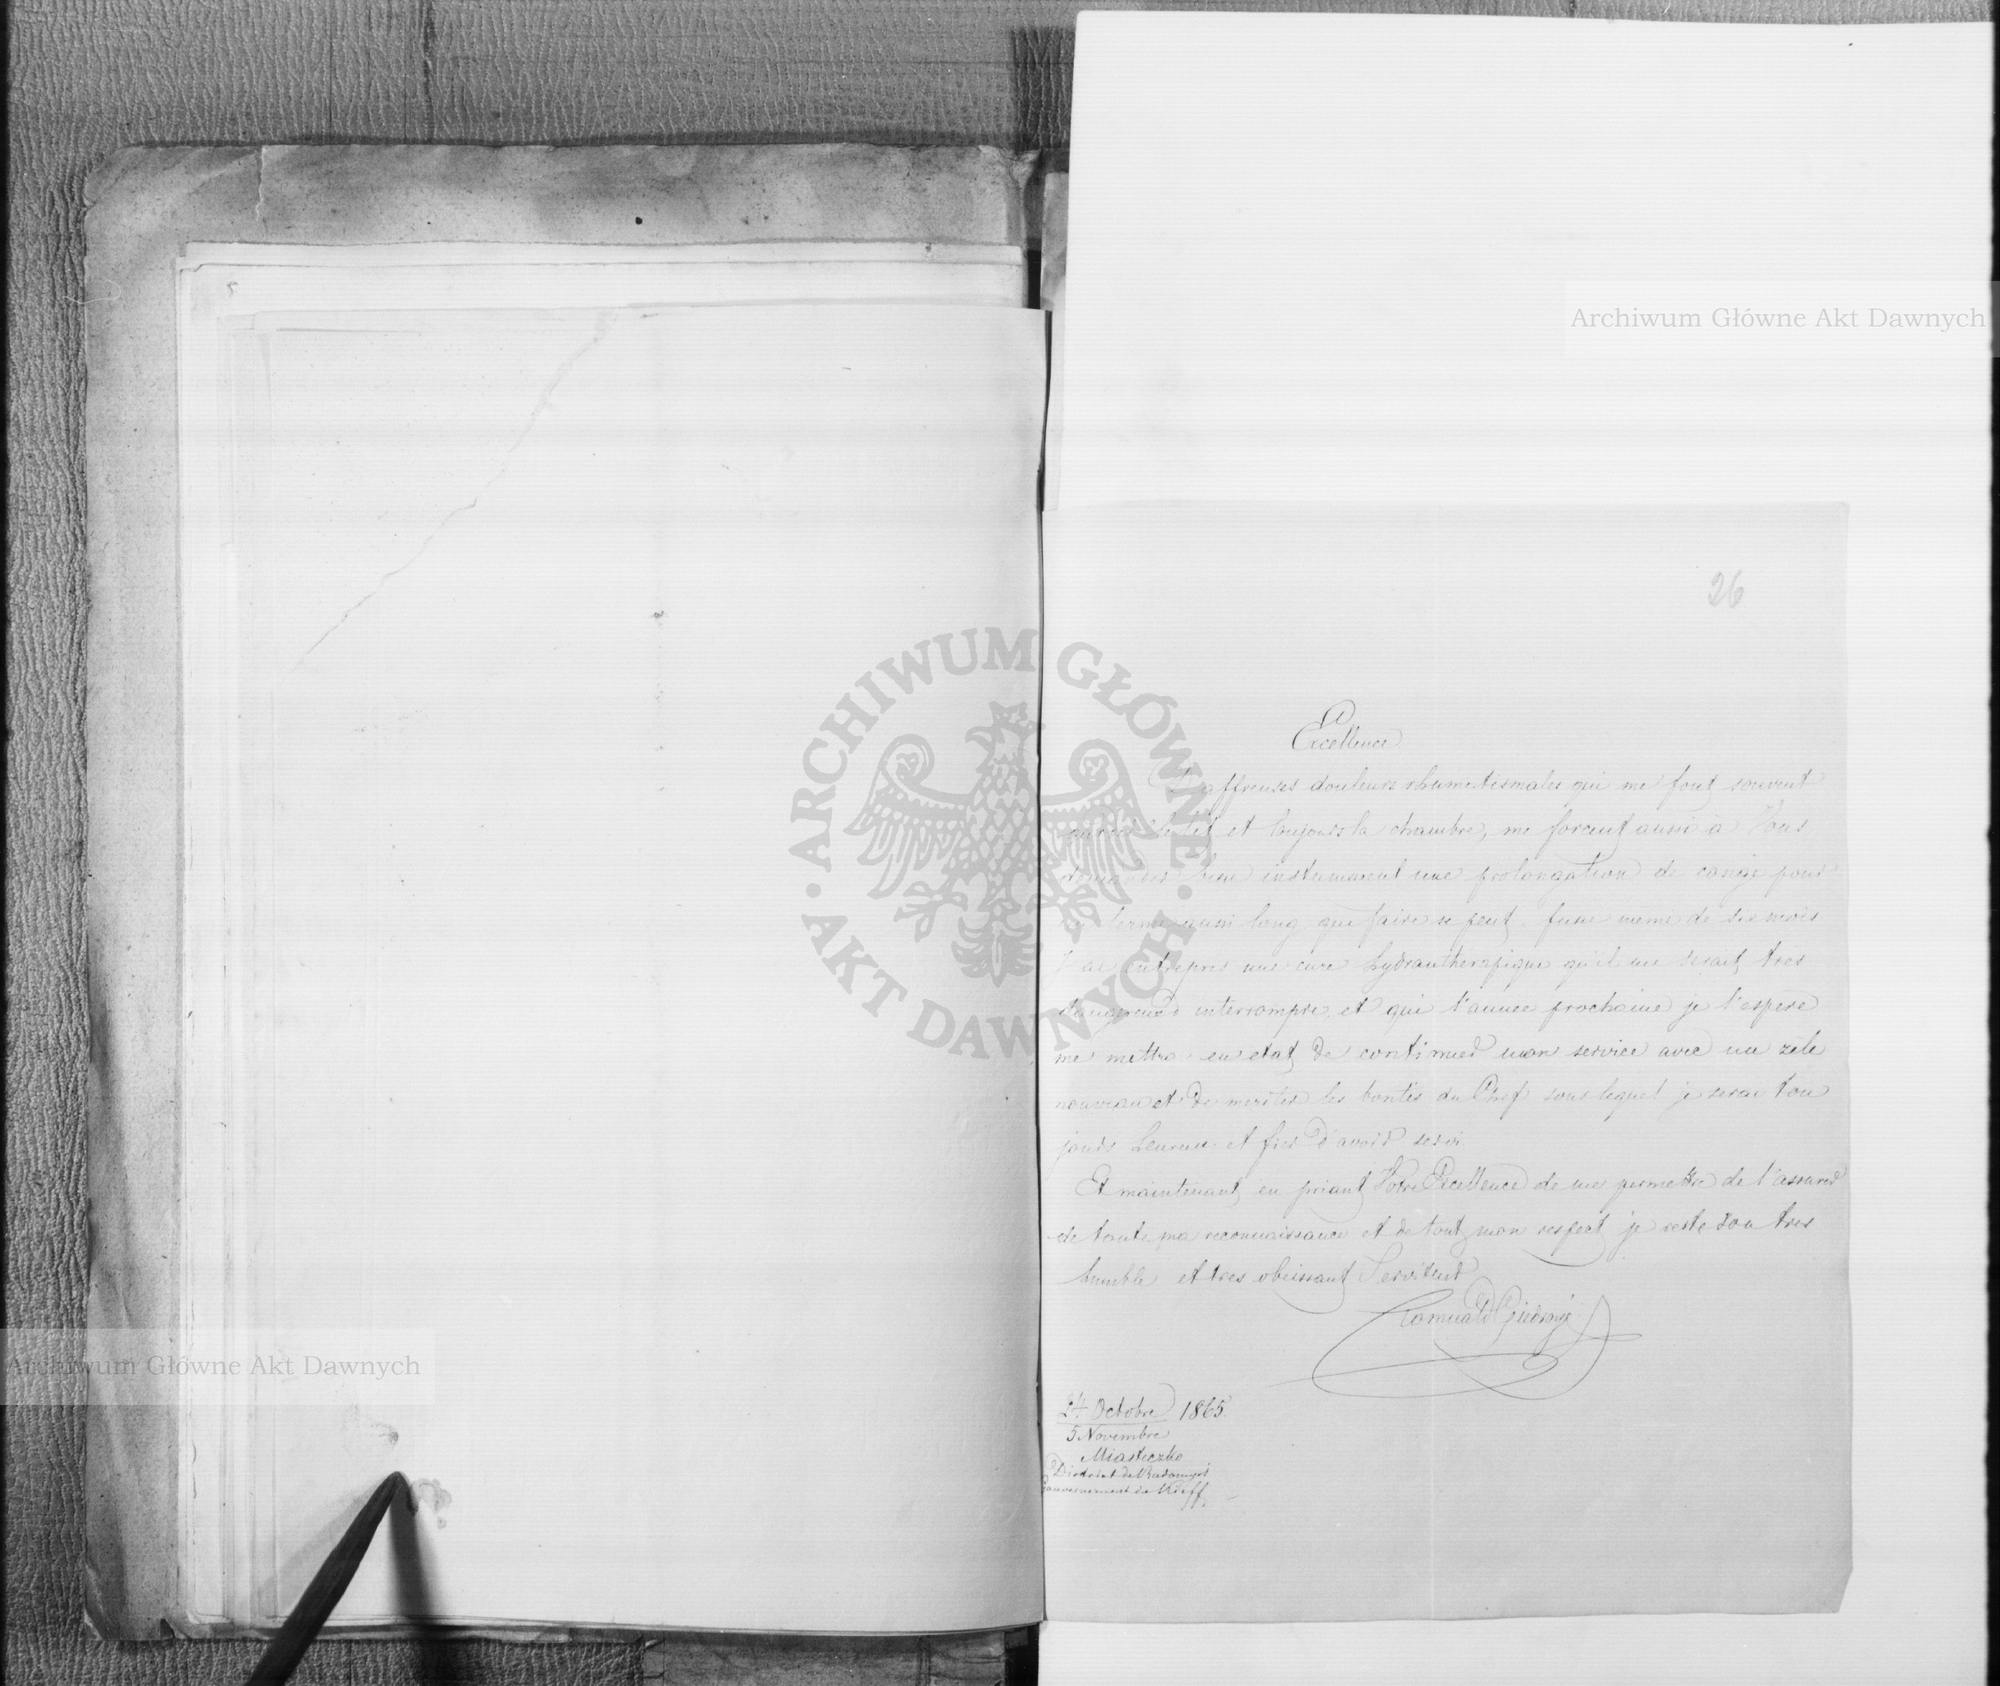 26
Excellence
D'affreuses douleurs rhumatismales qui me font souvent
le lit et toujours la chambre, me forcent aussi à Vous
demander bien instamment une prolongation de congé pour
un terme aussi long que faire se peut, fusse meme de six mois
J'ai entrepris une cure hydrautherapique qu'il me serait très
dangereux d'interrompre, et qui l'année prochaine je l'espère
me mettra en etat de continuer mon service avec un zèle
nouveau et de meriter les bontés du Chef sous lequel je serai tou
jours heureux et fier d'avoir servi.
Et maintenant, en priant Votre Excellence de me permettre de l'assurer
de toute ma reconnaissance et de tout mon respect je reste Son tres
humble et tres obeissant Serviteur
Romuald Giedroyć
24 Octobre 1865.
5 Novembre
Miasteczko
District de Radomysl
Gouvernement de Kieff
ARCHIWUM GŁÓWNE AKT DAWNYCH
Archiwum Główne Akt Dawnych
Archiwum Główne Akt Dawnych